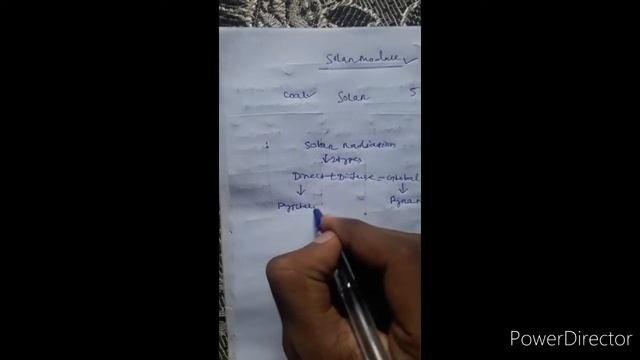 Solar module ✓
Coal Solar 5
Solar radiation
↓ 2 types
Direct + Diffuse = Global
↓ ↓
Pyrhe Pyran
PowerDirector